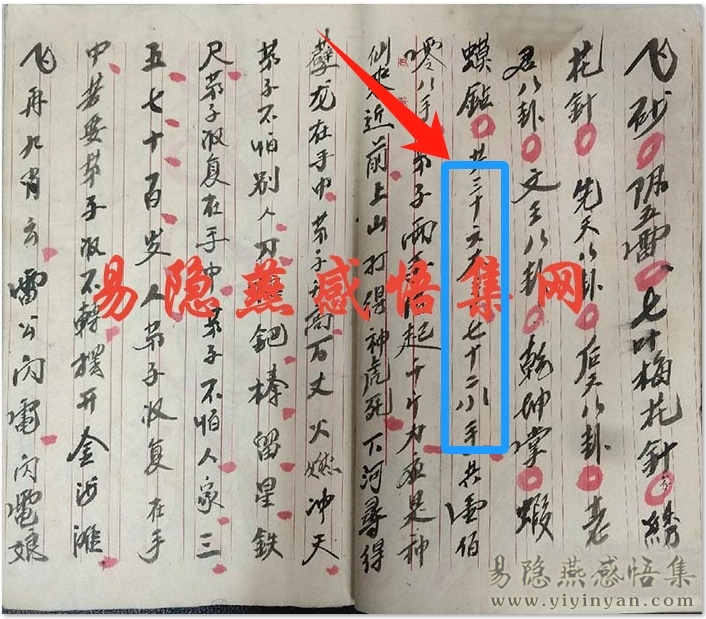 飞砂 阴五雷 七叶梅花针 绣
花针 先天八卦 后天八卦 老
君八卦 文王八卦 乾坤掌 蝦
蟆鈷 共三十六大手 七十二小手 共壹佰
零八手 弟子兩手 起千斤力 在是神
仙 近前上山打得神虎死 下河尋得
孽龙在手中 弟子 高百丈 火燃冲天
弟子不怕别人刀 鈀棒留星鉄
尺 弟子收复在手中 弟子不怕人家三
五七十百岁人 弟子收复在手
中 若要弟子收不轉 摆开金沙滩
飞再九霄云 雷公闪電 闪電娘
易隐燕感悟集网
易隐燕感悟集
www.yiyinyan.com